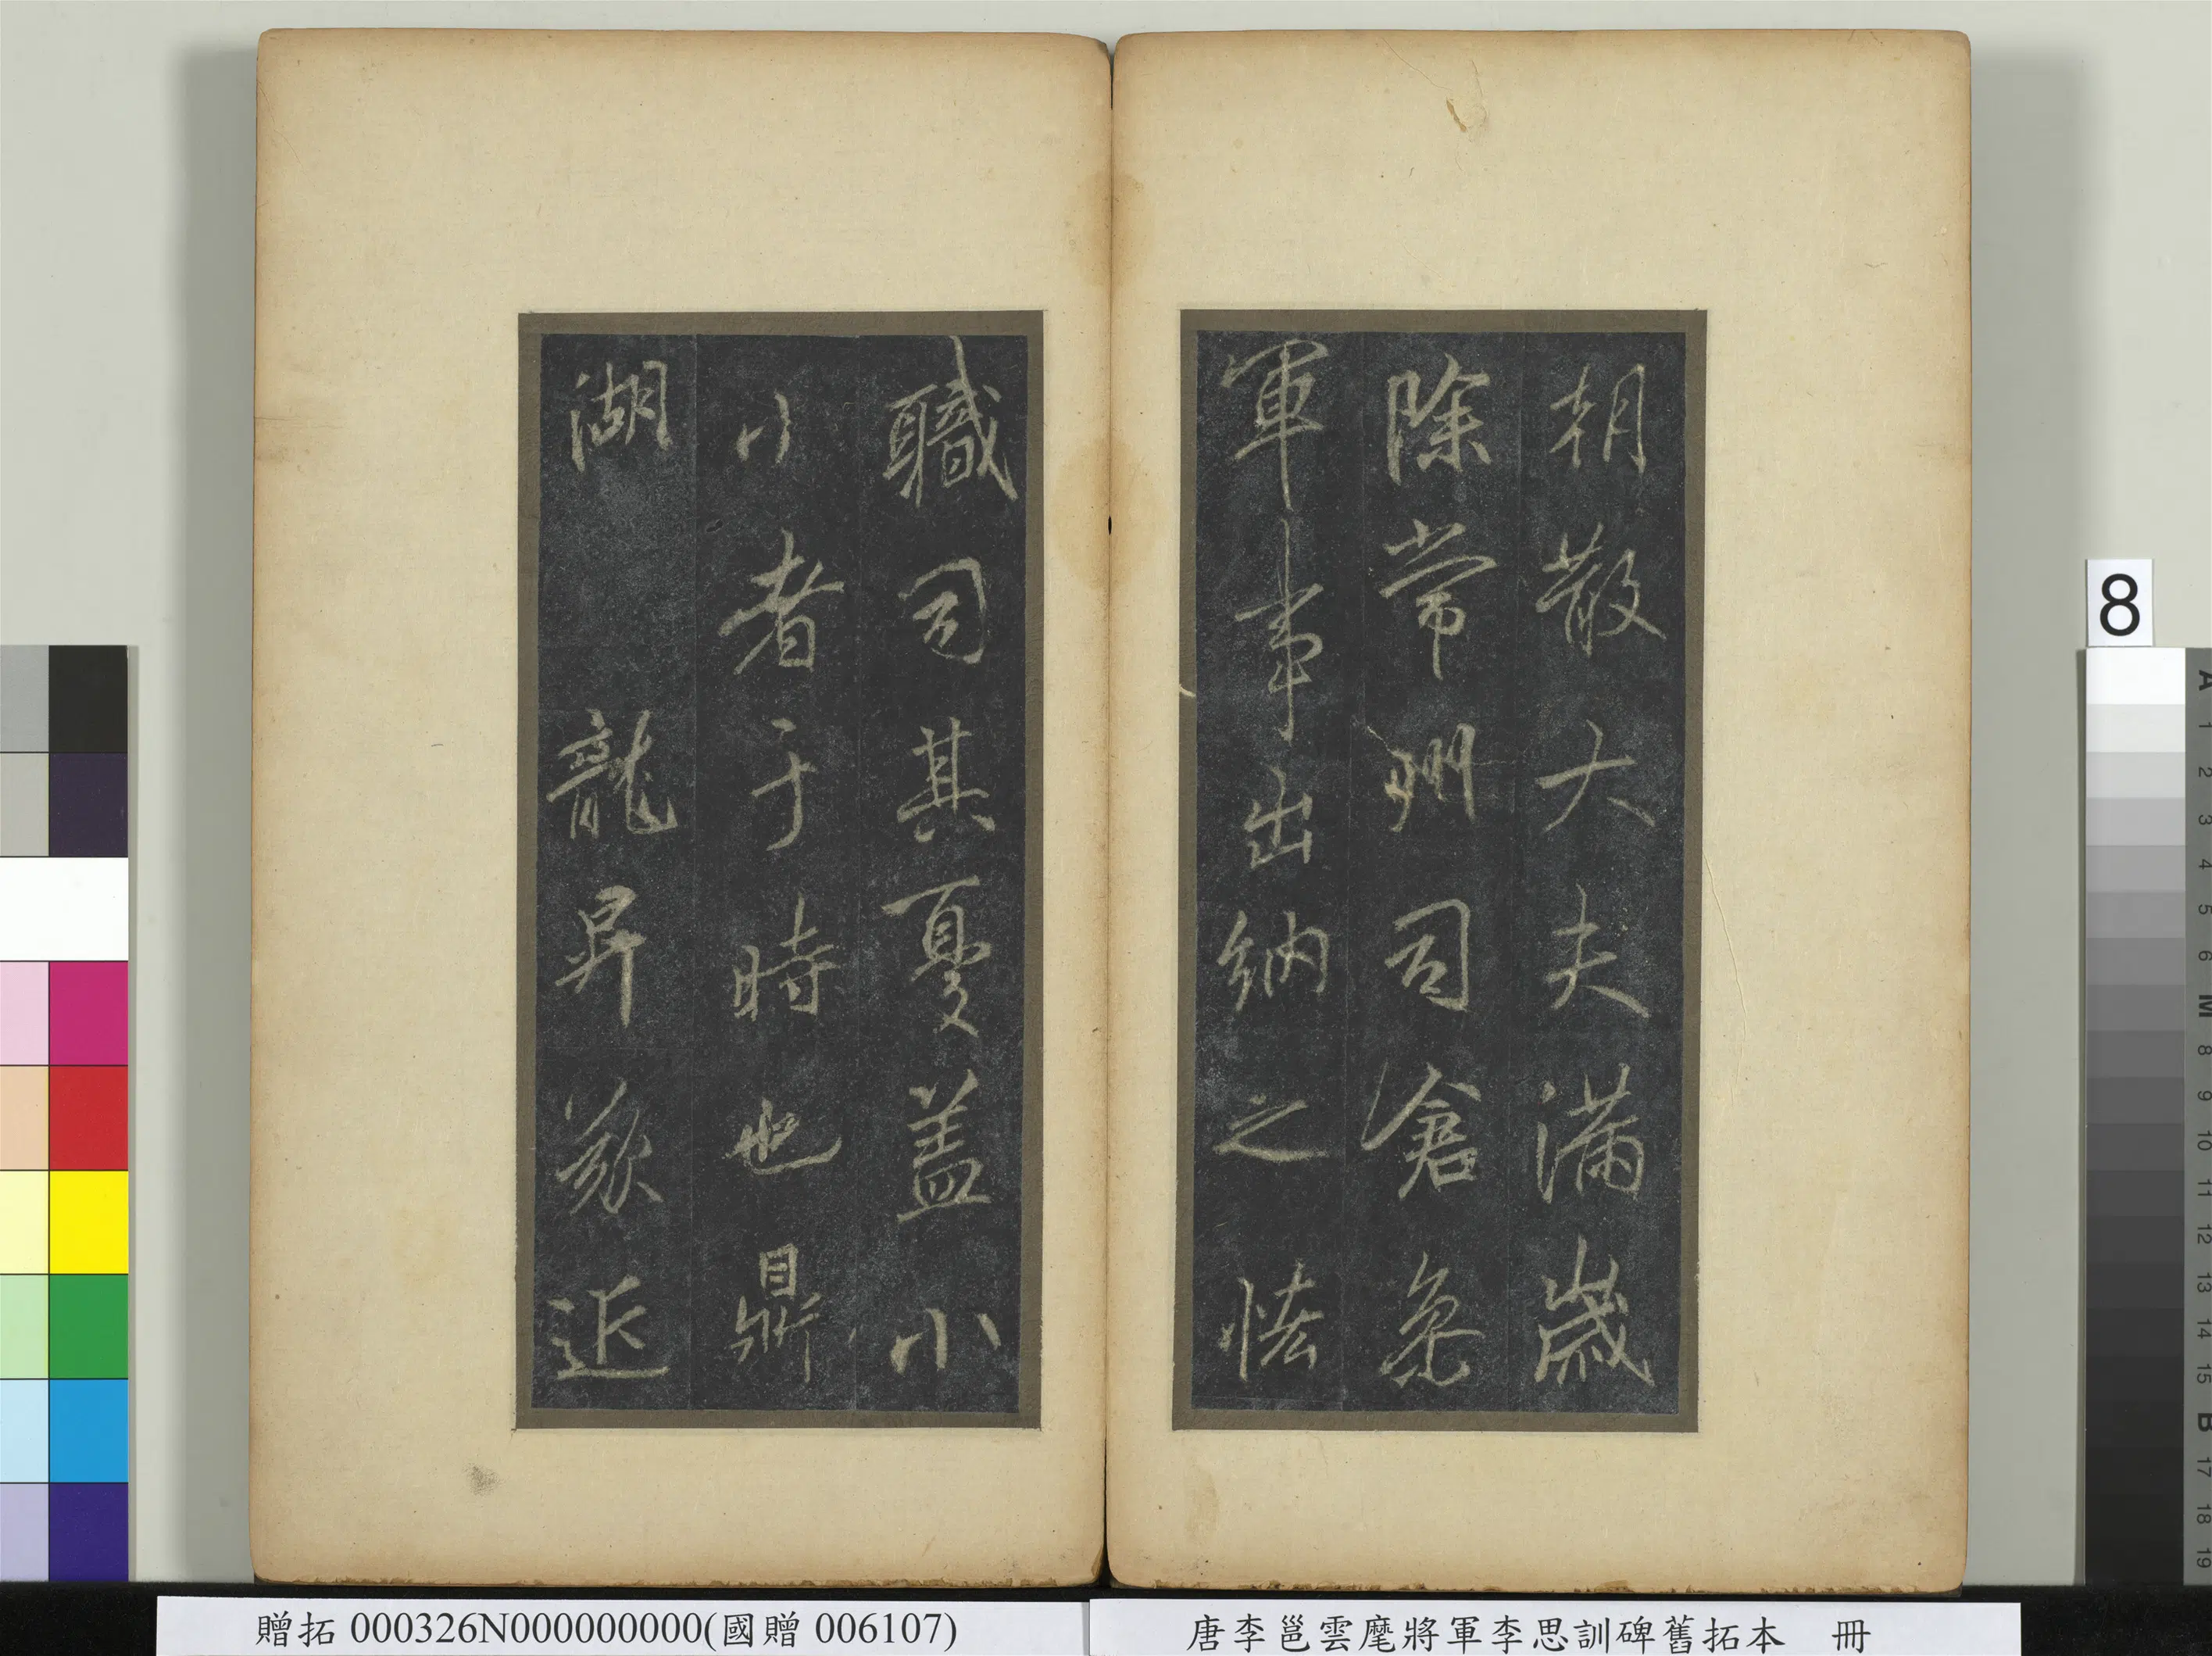 朝散大夫滿歲
除常州司倉叅
軍事出納之恡
職司其憂蓋小
小者于時也鼎
湖龍昇近
8
A 1 2 3 4 5 6 M 8 9 10 11 12 13 14 15 B 17 18 19
贈拓 000326N000000000(國贈 006107)
唐李邕雲麾將軍李思訓碑舊拓本 冊